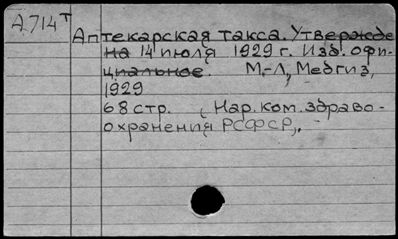 А714т
Аптекарская такса. Утвержде
на 14 июля 1929 г. Изд. офи-
циальное. М.-Л, Медгиз,
1929
68 стр. (Нар. ком. здраво-
охранения РСФСР).